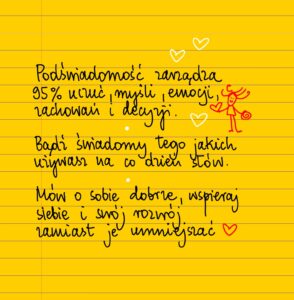 Podświadomość zarządza
95% uczuć, myśli, emocji,
zachowań i decyzji.
Bądź świadomy tego jakich
używasz na co dzień słów.
Mów o sobie dobrze, wspieraj
siebie i swój rozwój
zamiast je umniejszać